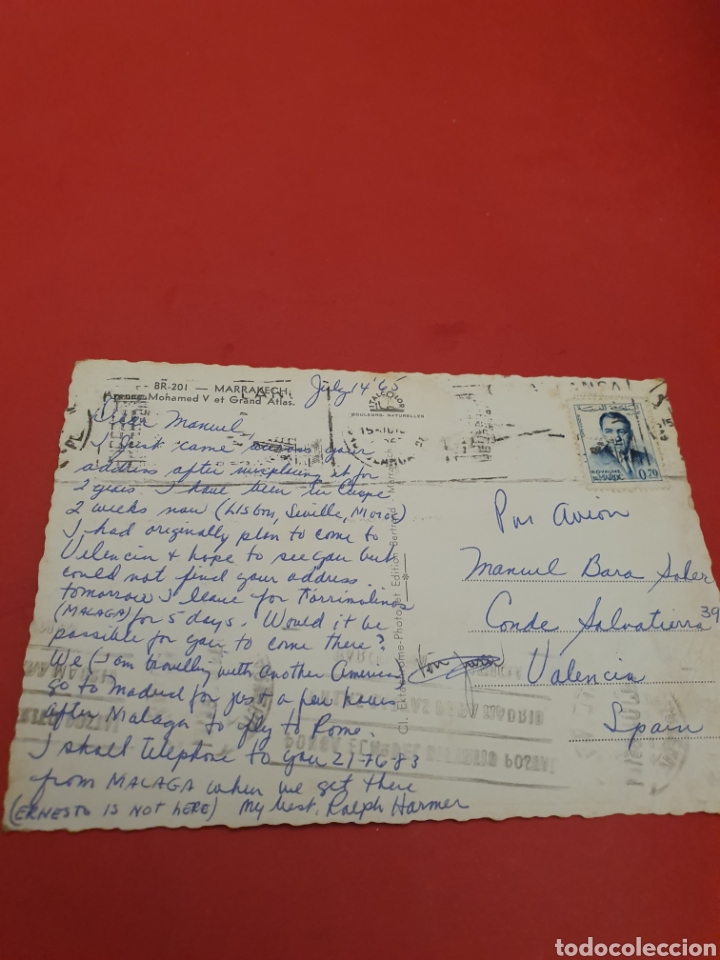 BR-201 — MARRAKECH
Avenue Mohamed V et Grand Atlas.
July 14 '65
COULEURS NATURELLES
Dear Manuel
I just came across your
address after misplacing it for
2 years. I have been in Europe
2 weeks now (Lisbon, Seville, Moroc)
I had originally plan to come to
Valencia & hope to see you but
could not find your address.
tomorrow I leave for Torrimolinos
(MALAGA) for 5 days. Would it be
possible for you to come there?
We (I am travelling with another American
go to Madrid for just a few hours
after Malaga to fly to Rome.
I shall telephone to you 21-76-83
from MALAGA when we get there
(ERNESTO IS NOT HERE) My best, Ralph Harmer
Cl. Ektachrome-Photo et Edition Bertrand - Marrakech
ROYAUME DU MAROC
0,20
Par Avion
Manuel Bara Soler
Conde Salvatierra 39
Valencia
Spain
todocoleccion